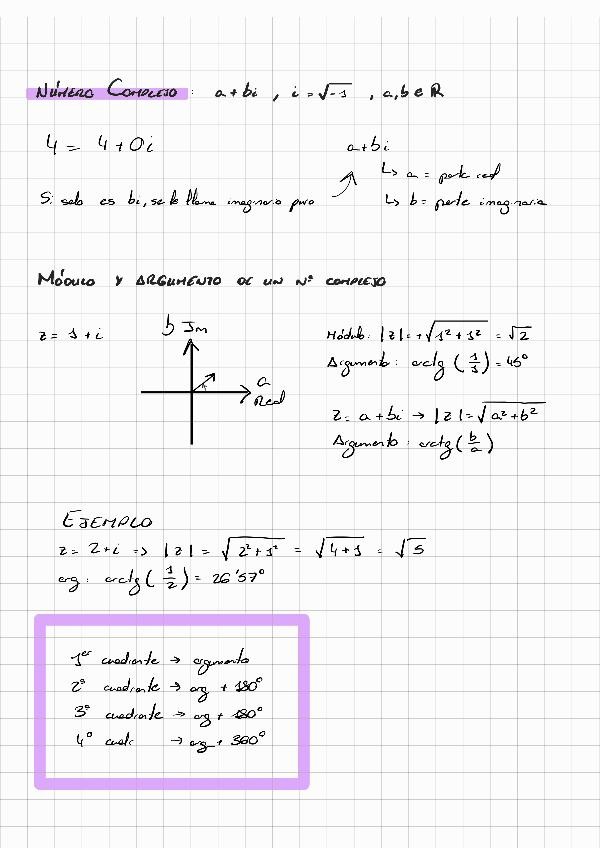 NÚMERO COMPLEJO: a+bi, i=√-1, a,b∈R
4 = 4+0i
a+bi
↳ a = parte real
Si solo es bi, se le llama imaginario puro
↳ b = parte imaginaria
MÓDULO Y ARGUMENTO DE UN Nº COMPLEJO
z = 1+i
b Im
a
Real
Módulo: |z| = +√(1²+1²) = √2
Argumento: arctg (1/1) = 45°
z = a+bi → |z| = √(a²+b²)
Argumento: arctg (b/a)
EJEMPLO
z = 2+i => |z| = √(2²+1²) = √(4+1) = √5
arg: arctg (1/2) = 26'57°
1er cuadrante → argumento
2º cuadrante → arg + 180°
3º cuadrante → arg + 180°
4º cuadr → arg + 360°